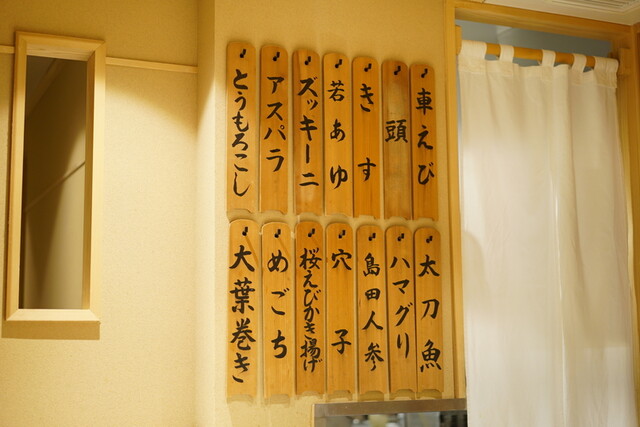 車えび
頭
きす
若あゆ
ズッキーニ
アスパラ
とうもろこし
太刀魚
ハマグリ
島田人参
穴子
桜えびかき揚げ
めごち
大葉巻き